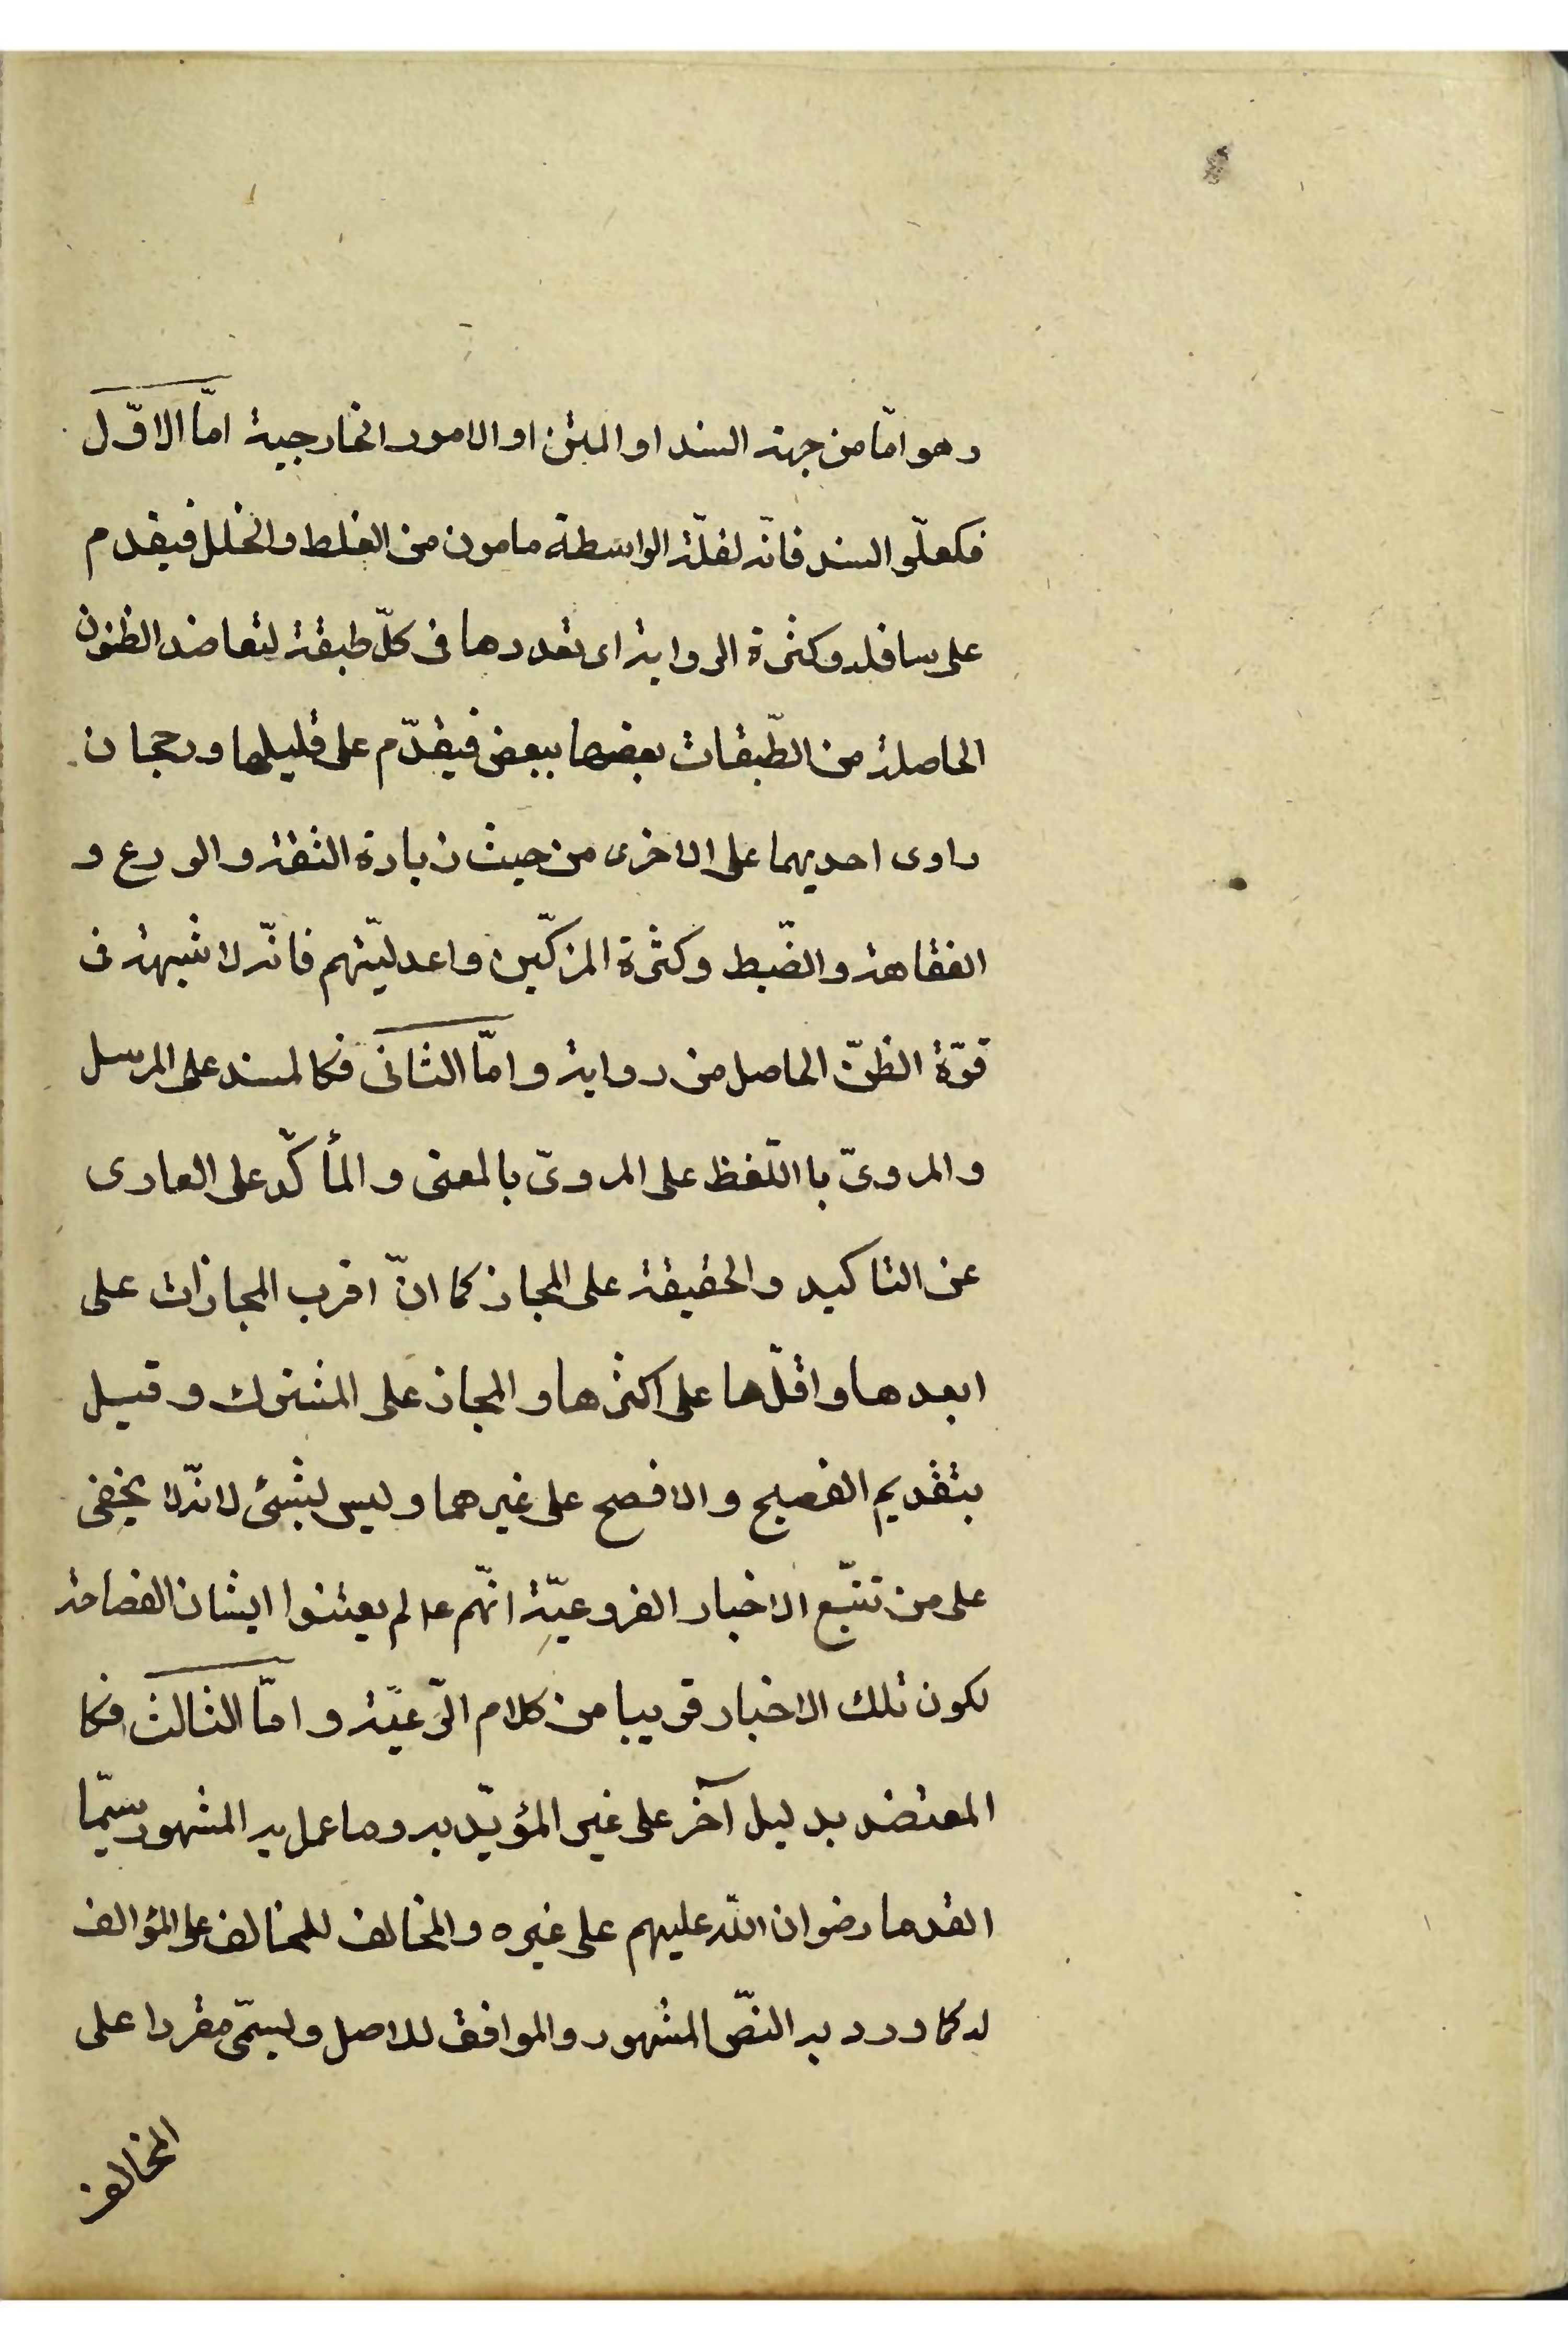 وهو امّا من جهة السند او المتن او الامور الخارجية امّا الاوّل
فكعلّو السند فانّه لقلّة الواسطة مامون من الغلط والخلل فيقدم
على سافله وكثرة الرواية اى تعددها فى كلّ طبقة لتعاضد الظنون
الحاصلة من الطّبقات بعضها ببعض فيقدّم على قليلها ورجحان
راوى احديهما على الاخرى من حيث زيادة الثقة والورع و
الفقاهة والضّبط وكثرة المزكّين واعدليّتهم فانّه لا شبهة فى
قوّة الظنّ الحاصل من رواية وامّا الثانى فكالمسند على المرسل
والمروىّ با اللّفظ على المروىّ بالمعنى والمأكّد على العارى
عن التاكيد والحقيقة على المجاز كما انّ اقرب المجازات على
ابعدها واقلّها على اكثرها والمجاز على المشترك وقيل
بتقديم الفصيح والافصح على غيرهما وليس بشئ لانّه لا يخفى
على من تتبّع الاخبار الفروعيّة انّهم ع لم يعتنوا ايشان الفصاحة
لكون تلك الاخبار قريبا من كلام الرّعيّة وامّا الثالث فكا
المعتضد بدليل آخر على غير المؤيّد به وما عمل به المشهور سيّما
القدما رضوان اللّه عليهم على غيره والمخالف للمخالف على المؤالف
له كما ورد به النصّ المشهور والموافق للاصل ويسمّى مقررا على
المخالف